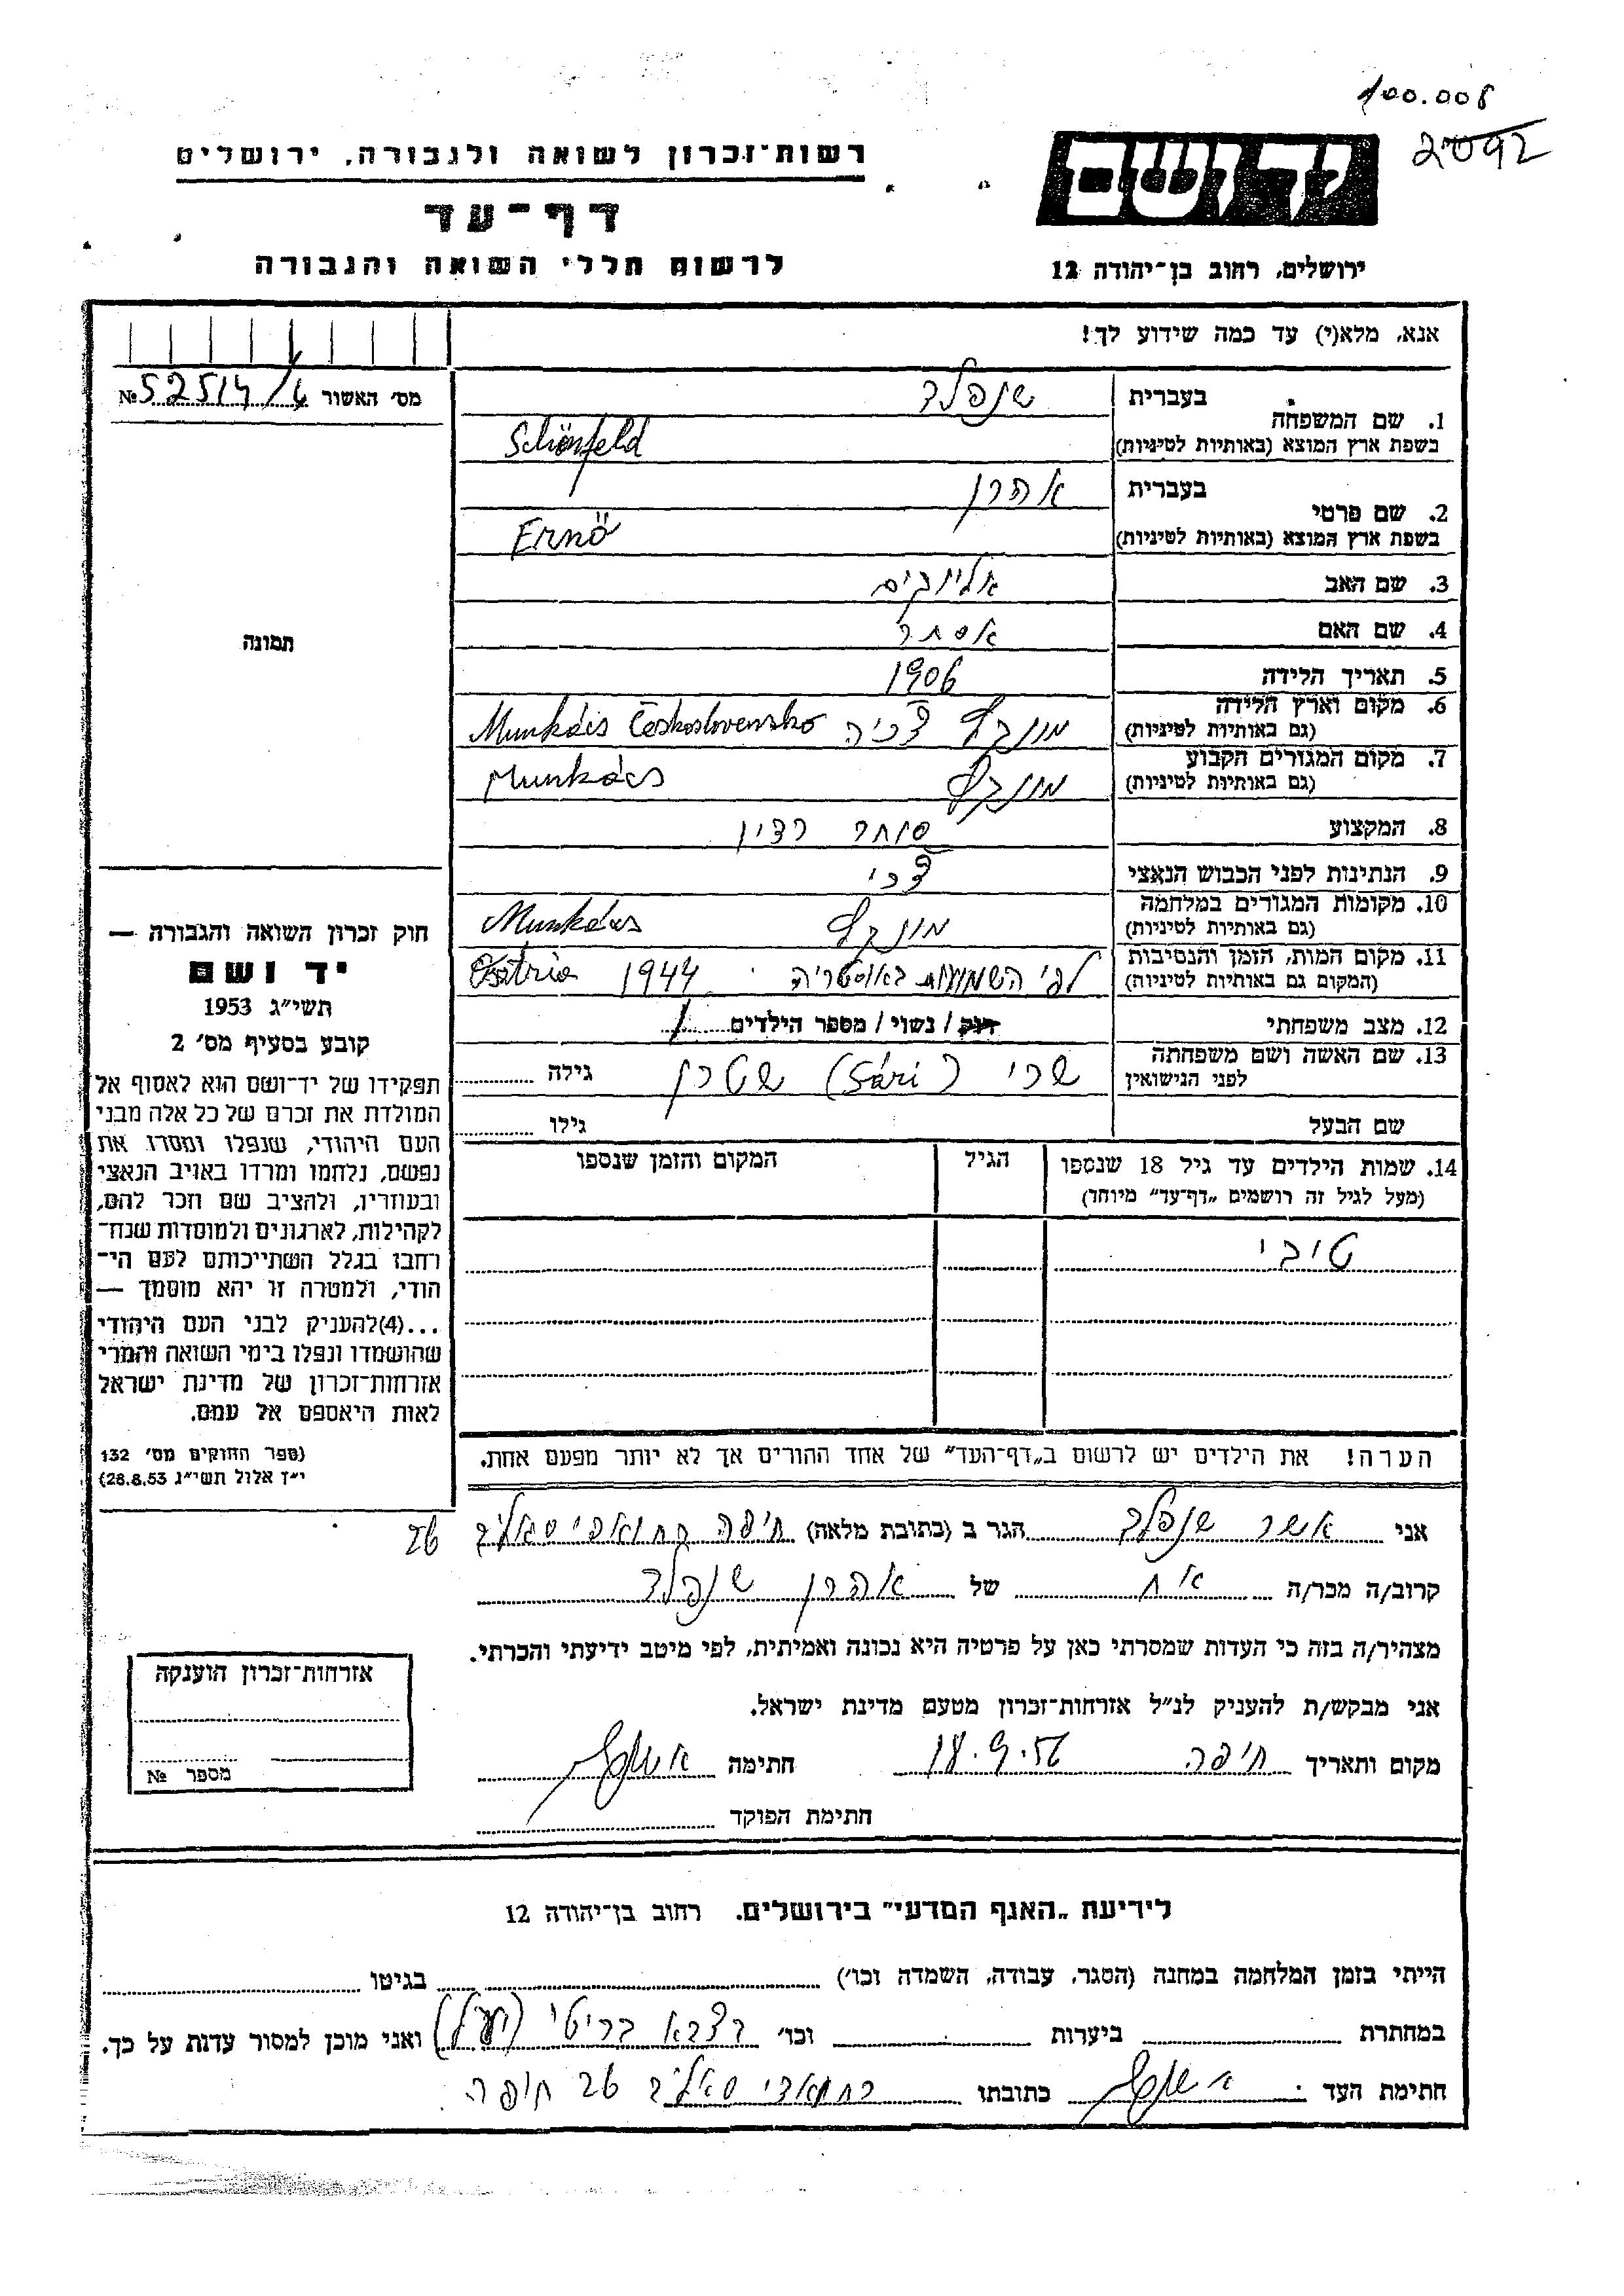 100.008
רשות־זכרון לשואה ולגבורה, ירושלים
דף־עד
לרשום חללי השואה והגבורה
יד ושם
ירושלים, רחוב בן־יהודה 12
אנא, מלא(י) עד כמה שידוע לך!
מס׳ האשור № 52514/
1. שם המשפחה בעברית שנפלד
בשפת ארץ המוצא (באותיות לטיניות) Schönfeld
2. שם פרטי בעברית אהרן
בשפת ארץ המוצא (באותיות לטיניות) Ernö
3. שם האב אליקים
4. שם האם אסתר
5. תאריך הלידה 1906
6. מקום וארץ הלידה (גם באותיות לטיניות) מונקץ׳ צ׳כיה Munkács Československo
7. מקום המגורים הקבוע (גם באותיות לטיניות) מונקץ׳ Munkács
8. המקצוע סוחר
9. הנתינות לפני הכבוש הנאצי צ׳כי
10. מקומות המגורים במלחמה (גם באותיות לטיניות) מונקץ׳ Munkács
11. מקום המות, הזמן והנסיבות (המקום גם באותיות לטיניות) לפי השמועות באוסטריה 1944
12. מצב משפחתי רוק / נשוי / מספר הילדים 1
13. שם האשה ושם משפחתה לפני הנישואין שרי (Sári) שטרן גילה
שם הבעל גילו
14. שמות הילדים עד גיל 18 שנספו (מעל לגיל זה רושמים „דף־עד” מיוחד) הגיל המקום והזמן שנספו
טובי
תמונה
חוק זכרון השואה והגבורה —
יד ושם
תשי״ג 1953
קובע בסעיף מס׳ 2
תפקידו של יד־ושם הוא לאסוף אל
המולדת את זכרם של כל אלה מבני
העם היהודי, שנפלו ומסרו את
נפשם, נלחמו ומרדו באויב הנאצי
ובעוזריו, ולהציב שם וזכר להם,
לקהילות, לארגונים ולמוסדות שנח־
רבו בגלל השתייכותם לעם הי־
הודי, ולמטרה זו יהא מוסמך —
...(4)להעניק לבני העם היהודי
שהושמדו ונפלו בימי השואה והמרי
אזרחות־זכרון של מדינת ישראל
לאות היאספם אל עמם.
(ספר החוקים מס׳ 132
י״ז אלול תשי״ג 28.8.53)
הערה! את הילדים יש לרשום ב„דף־העד” של אחד ההורים אך לא יותר מפעם אחת.
אני אשר שנפלד הגר ב (כתובת מלאה) חיפה 26
קרוב/ה מכר/ה אח של אהרן שנפלד
מצהיר/ה בזה כי העדות שמסרתי כאן על פרטיה היא נכונה ואמיתית, לפי מיטב ידיעתי והכרתי.
אני מבקש/ת להעניק לנ״ל אזרחות־זכרון מטעם מדינת ישראל.
מקום ותאריך חיפה 18.9.56 חתימה
חתימת הפוקד
אזרחות־זכרון הוענקה
מספר №
לידיעת „האגף המדעי” בירושלים. רחוב בן־יהודה 12
הייתי בזמן המלחמה במחנה (הסגר, עבודה, השמדה וכו׳) בגיטו
במחתרת ביערות וכו׳ בצבא בריטי ואני מוכן למסור עדות על כך.
חתימת העד כתובתו 26 חיפה